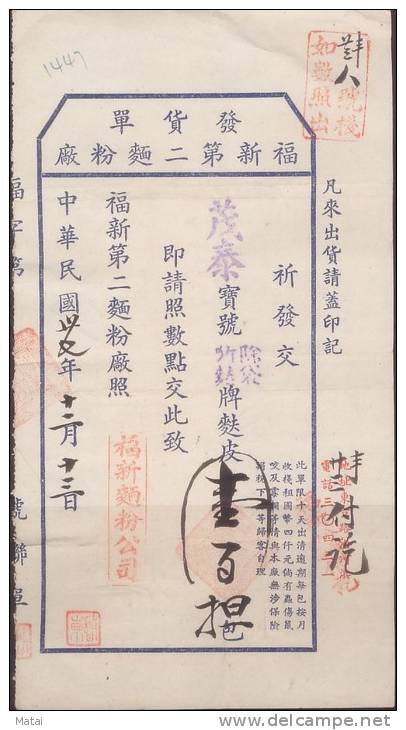 1447
如數照出
人號棧
發貨單
福新第二麵粉廠
凡來出貨請蓋印記
祈發交
茂泰寶號
除袋
牌麩皮
壹百
包
此單限十天出清逾期每包按月
收棧租國幣四仟元倘有蟲傷鼠
咬及霉爛等情與本廠無涉保險
即請照數點交此致
福新第二麵粉廠照
福新麵粉公司
中華民國卅七年十二月十三日
付訖
福字第
號聯單
Matai
delcampe.net